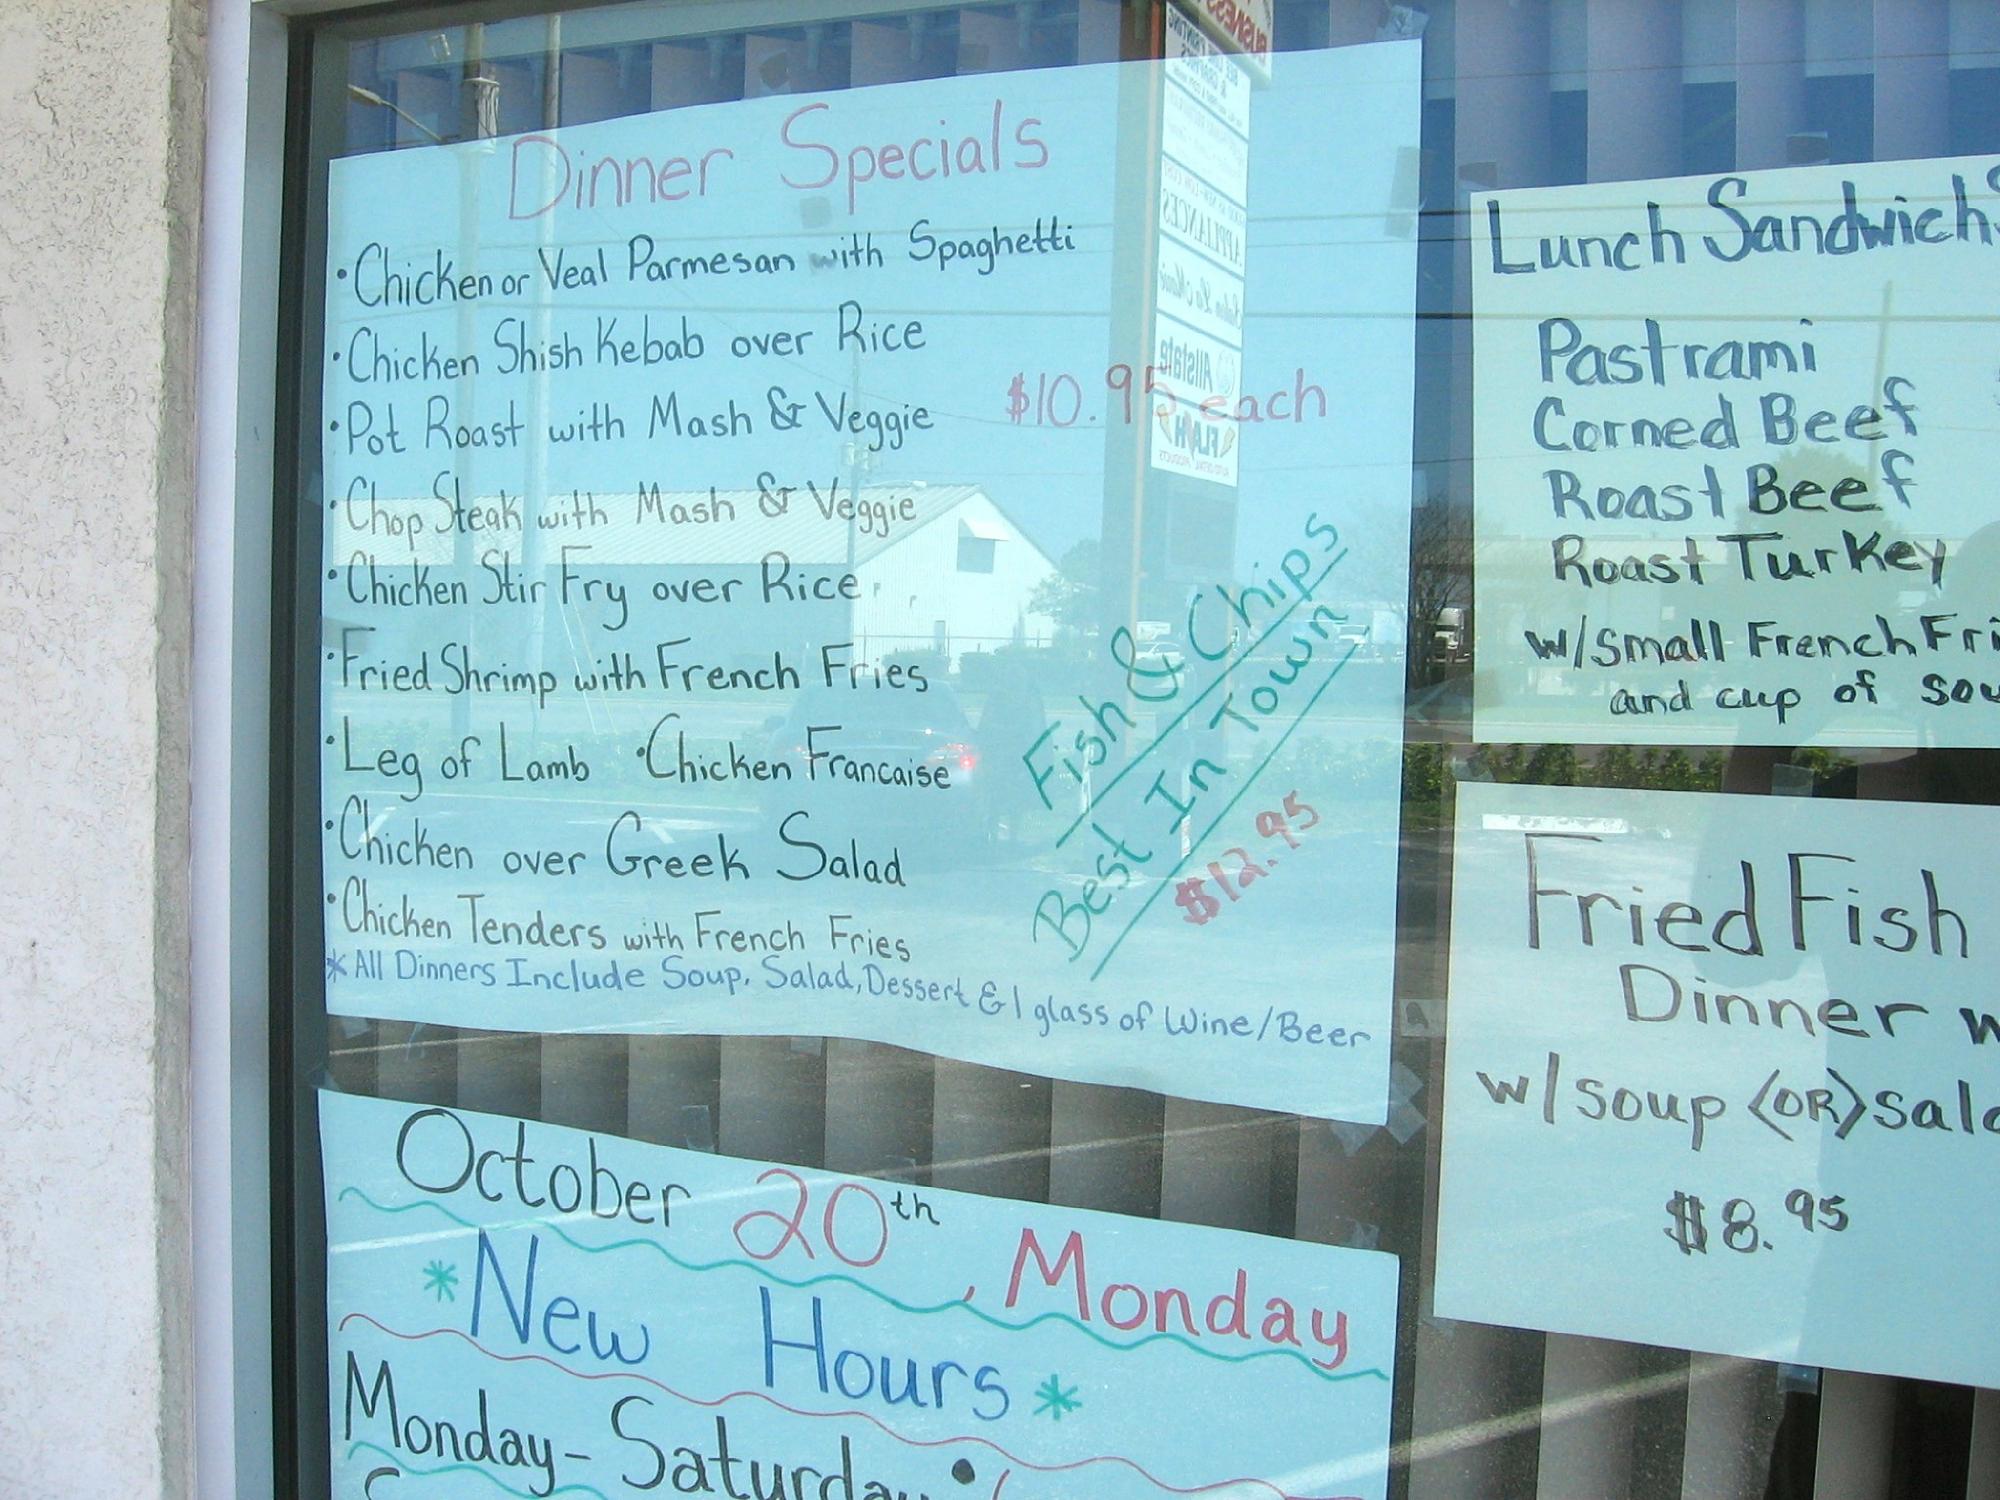 Dinner Specials
• Chicken or Veal Parmesan with Spaghetti
• Chicken Shish Kebab over Rice
• Pot Roast with Mash & Veggie
$10.95 each
• Chop Steak with Mash & Veggie
• Chicken Stir Fry over Rice
• Fried Shrimp with French Fries
• Leg of Lamb • Chicken Francaise
• Chicken over Greek Salad
• Chicken Tenders with French Fries
* All Dinners Include Soup, Salad, Dessert & 1 glass of Wine/Beer
Fish & Chips
Best In Town
$12.95
October 20th, Monday
* New Hours *
Monday - Saturday
Lunch Sandwich
Pastrami
Corned Beef
Roast Beef
Roast Turkey
w/small French Fri
and cup of sou
Fried Fish
Dinner w
w/soup <OR> sala
$8.95
BUSINESS
APPLIANCES
Allstate
FLASH